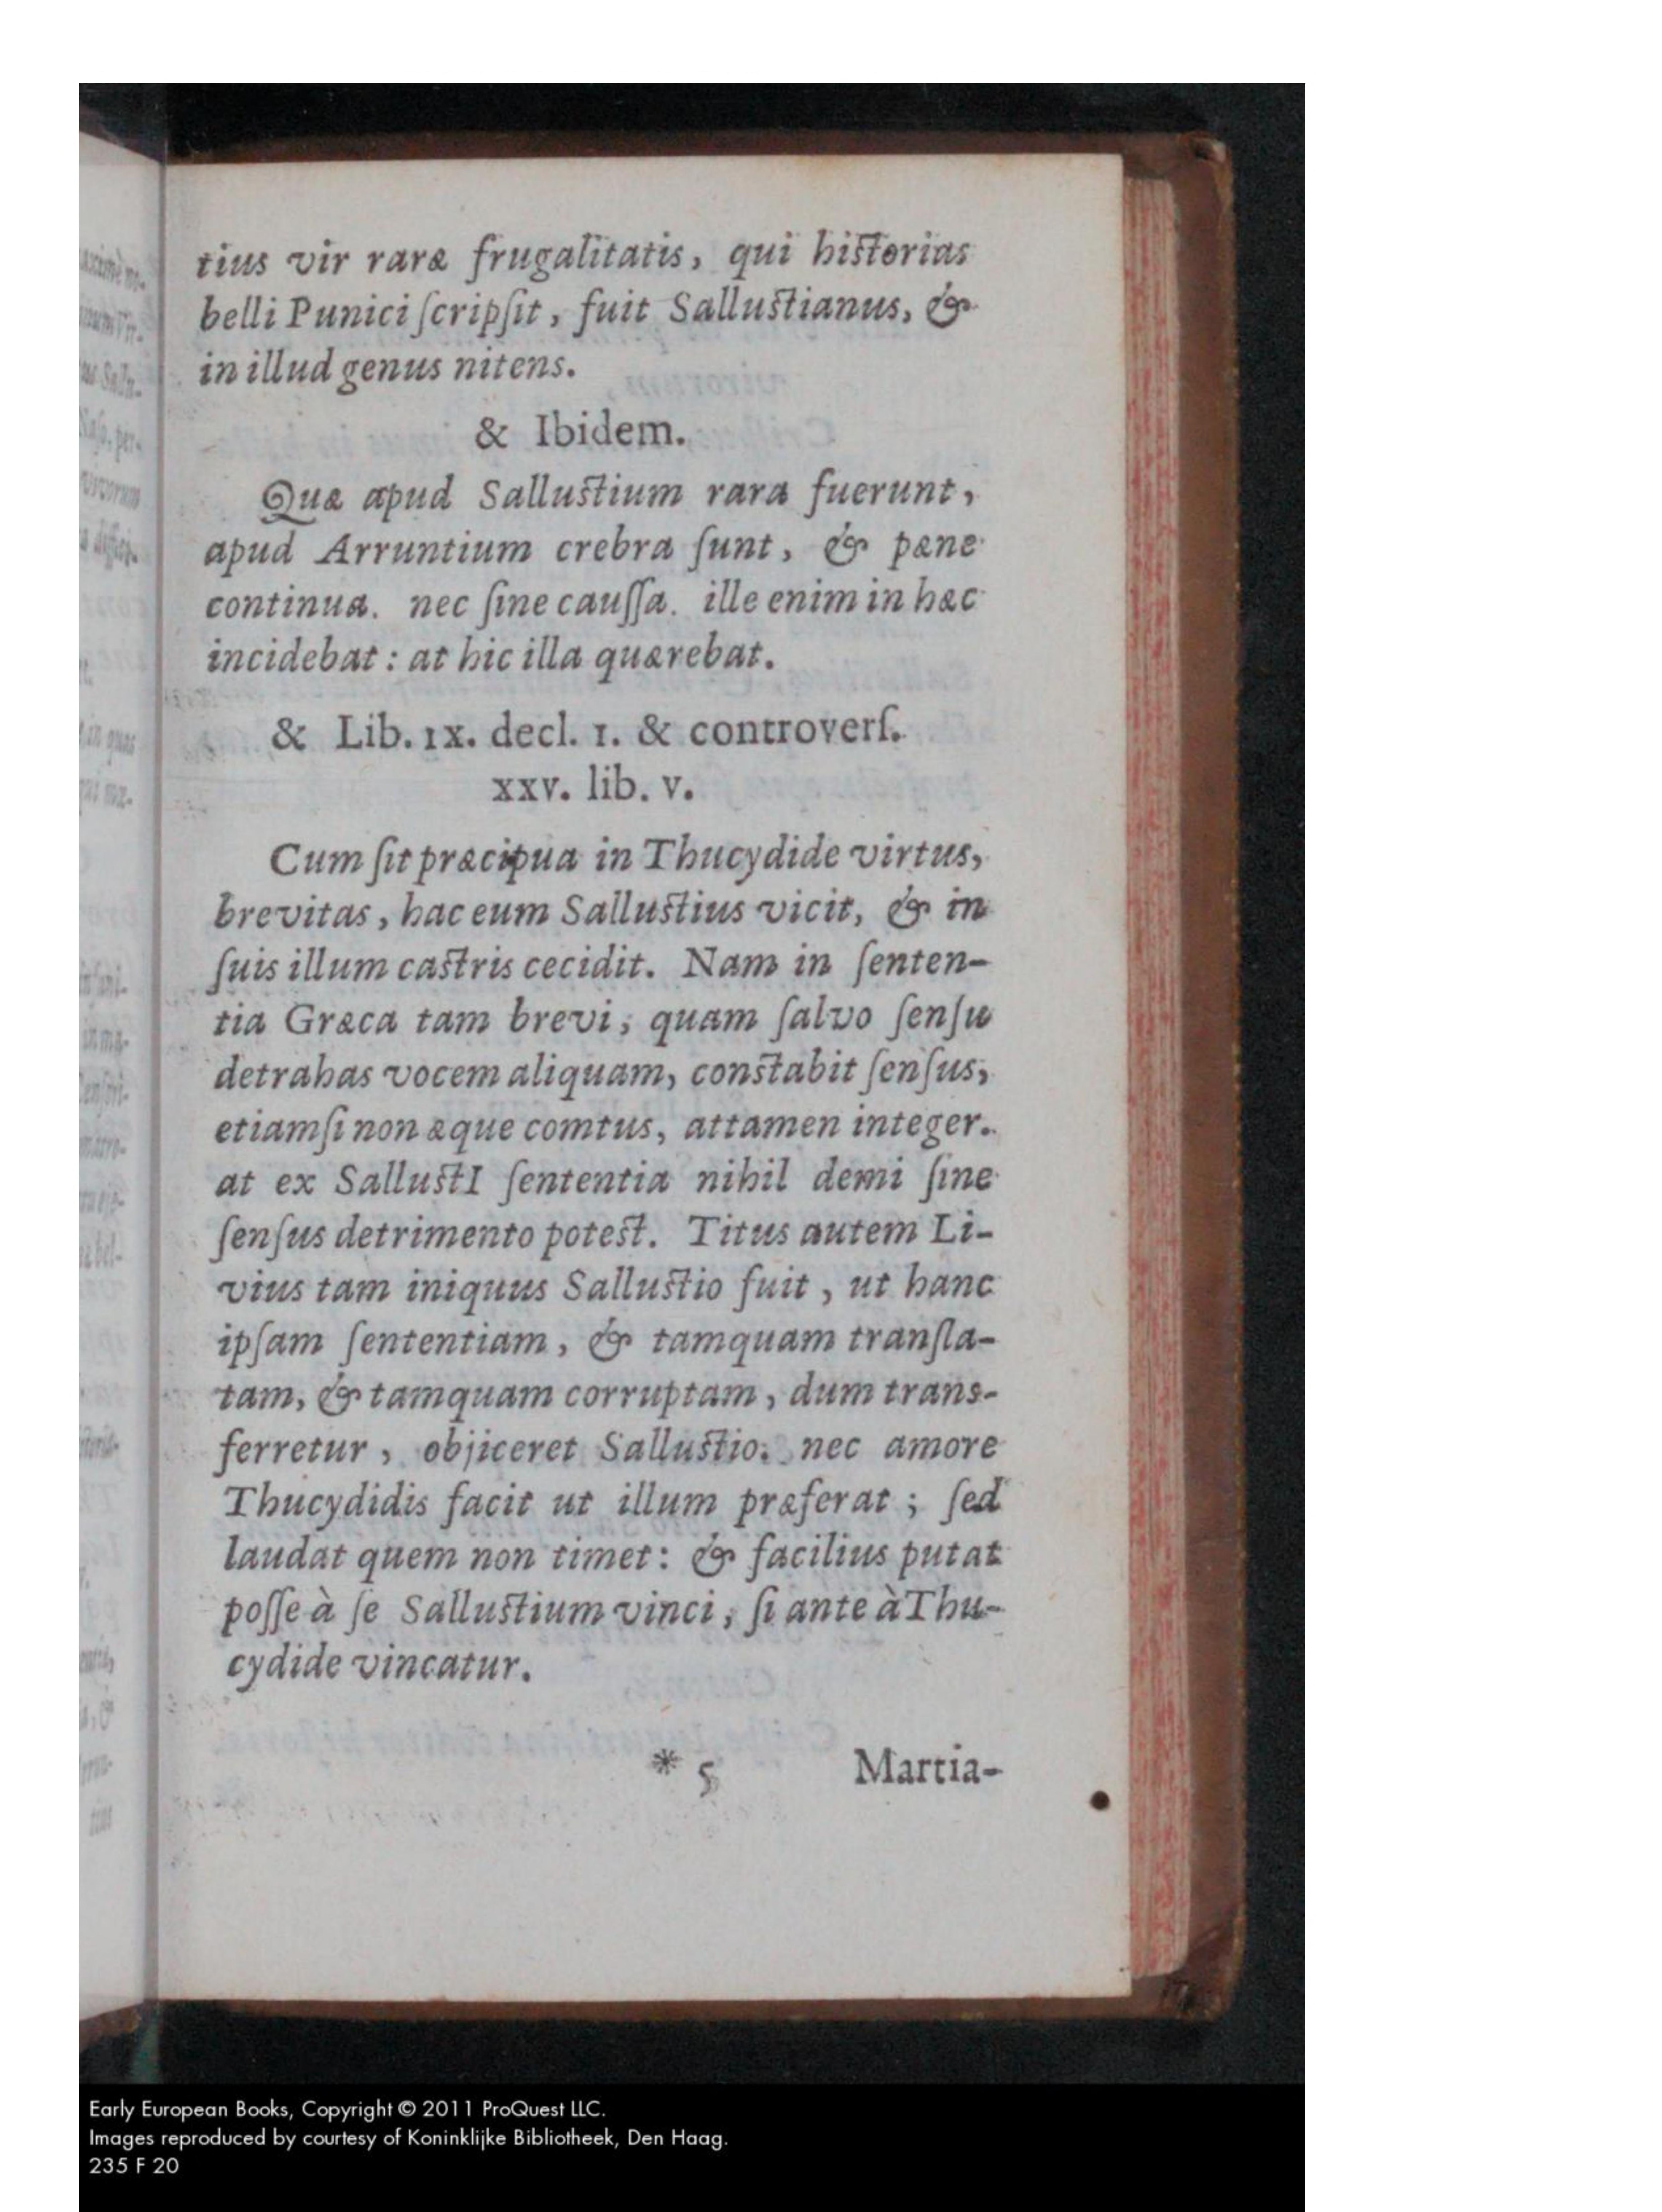 tius vir raræ frugalitatis, qui historias
belli Punici ſcripſit, fuit Sallustianus, &
in illud genus nitens.
& Ibidem.
Quæ apud Sallustium rara fuerunt,
apud Arruntium crebra ſunt, & pæne
continua. nec ſine cauſſa. ille enim in hæc
incidebat: at hic illa quærebat.
& Lib. IX. decl. I. & controverſ.
XXV. lib. V.
Cum ſit præcipua in Thucydide virtus,
brevitas, hac eum Sallustius vicit, & in
ſuis illum castris cecidit. Nam in ſenten-
tia Græca tam brevi, quam ſalvo ſenſu
detrahas vocem aliquam, constabit ſenſus,
etiamſi non æque comtus, attamen integer.
at ex SallustI ſententia nihil demi ſine
ſenſus detrimento potest. Titus autem Li-
vius tam iniquus Sallustio fuit, ut hanc
ipſam ſententiam, & tamquam tranſla-
tam, & tamquam corruptam, dum trans-
ferretur, objiceret Sallustio. nec amore
Thucydidis facit ut illum præferat; ſed
laudat quem non timet: & facilius putat
poſſe à ſe Sallustium vinci, ſi ante à Thu-
cydide vincatur.
* 5 Martia-
Early European Books, Copyright © 2011 ProQuest LLC.
Images reproduced by courtesy of Koninklijke Bibliotheek, Den Haag.
235 F 20